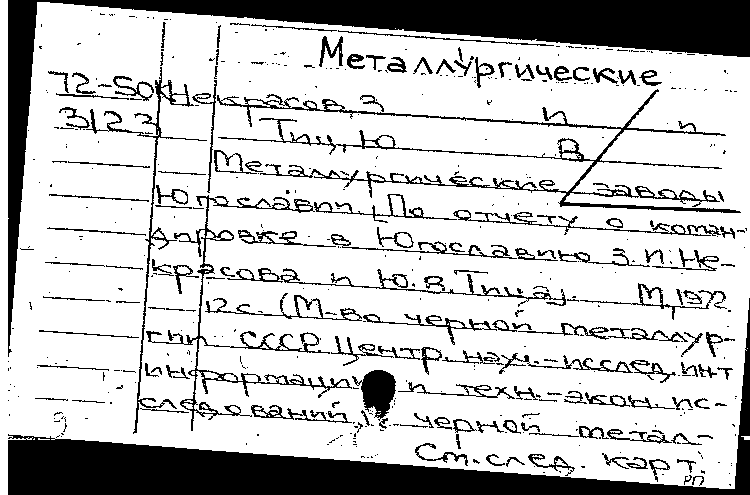 Металлургические
72-50К Некрасов, З П П
3123 Тиц, Ю В
Металлургические заводы
Югославии. [По отчету о коман-
дировке в Югославию З.П. Не-
красова и Ю.В. Тица]. М, 1972
12с. (М-во черной металлур-
гии СССР. Центр. науч.-исслед. ин-т
информации и техн.-экон. ис-
следований черной метал-
См. след. карт.
РП